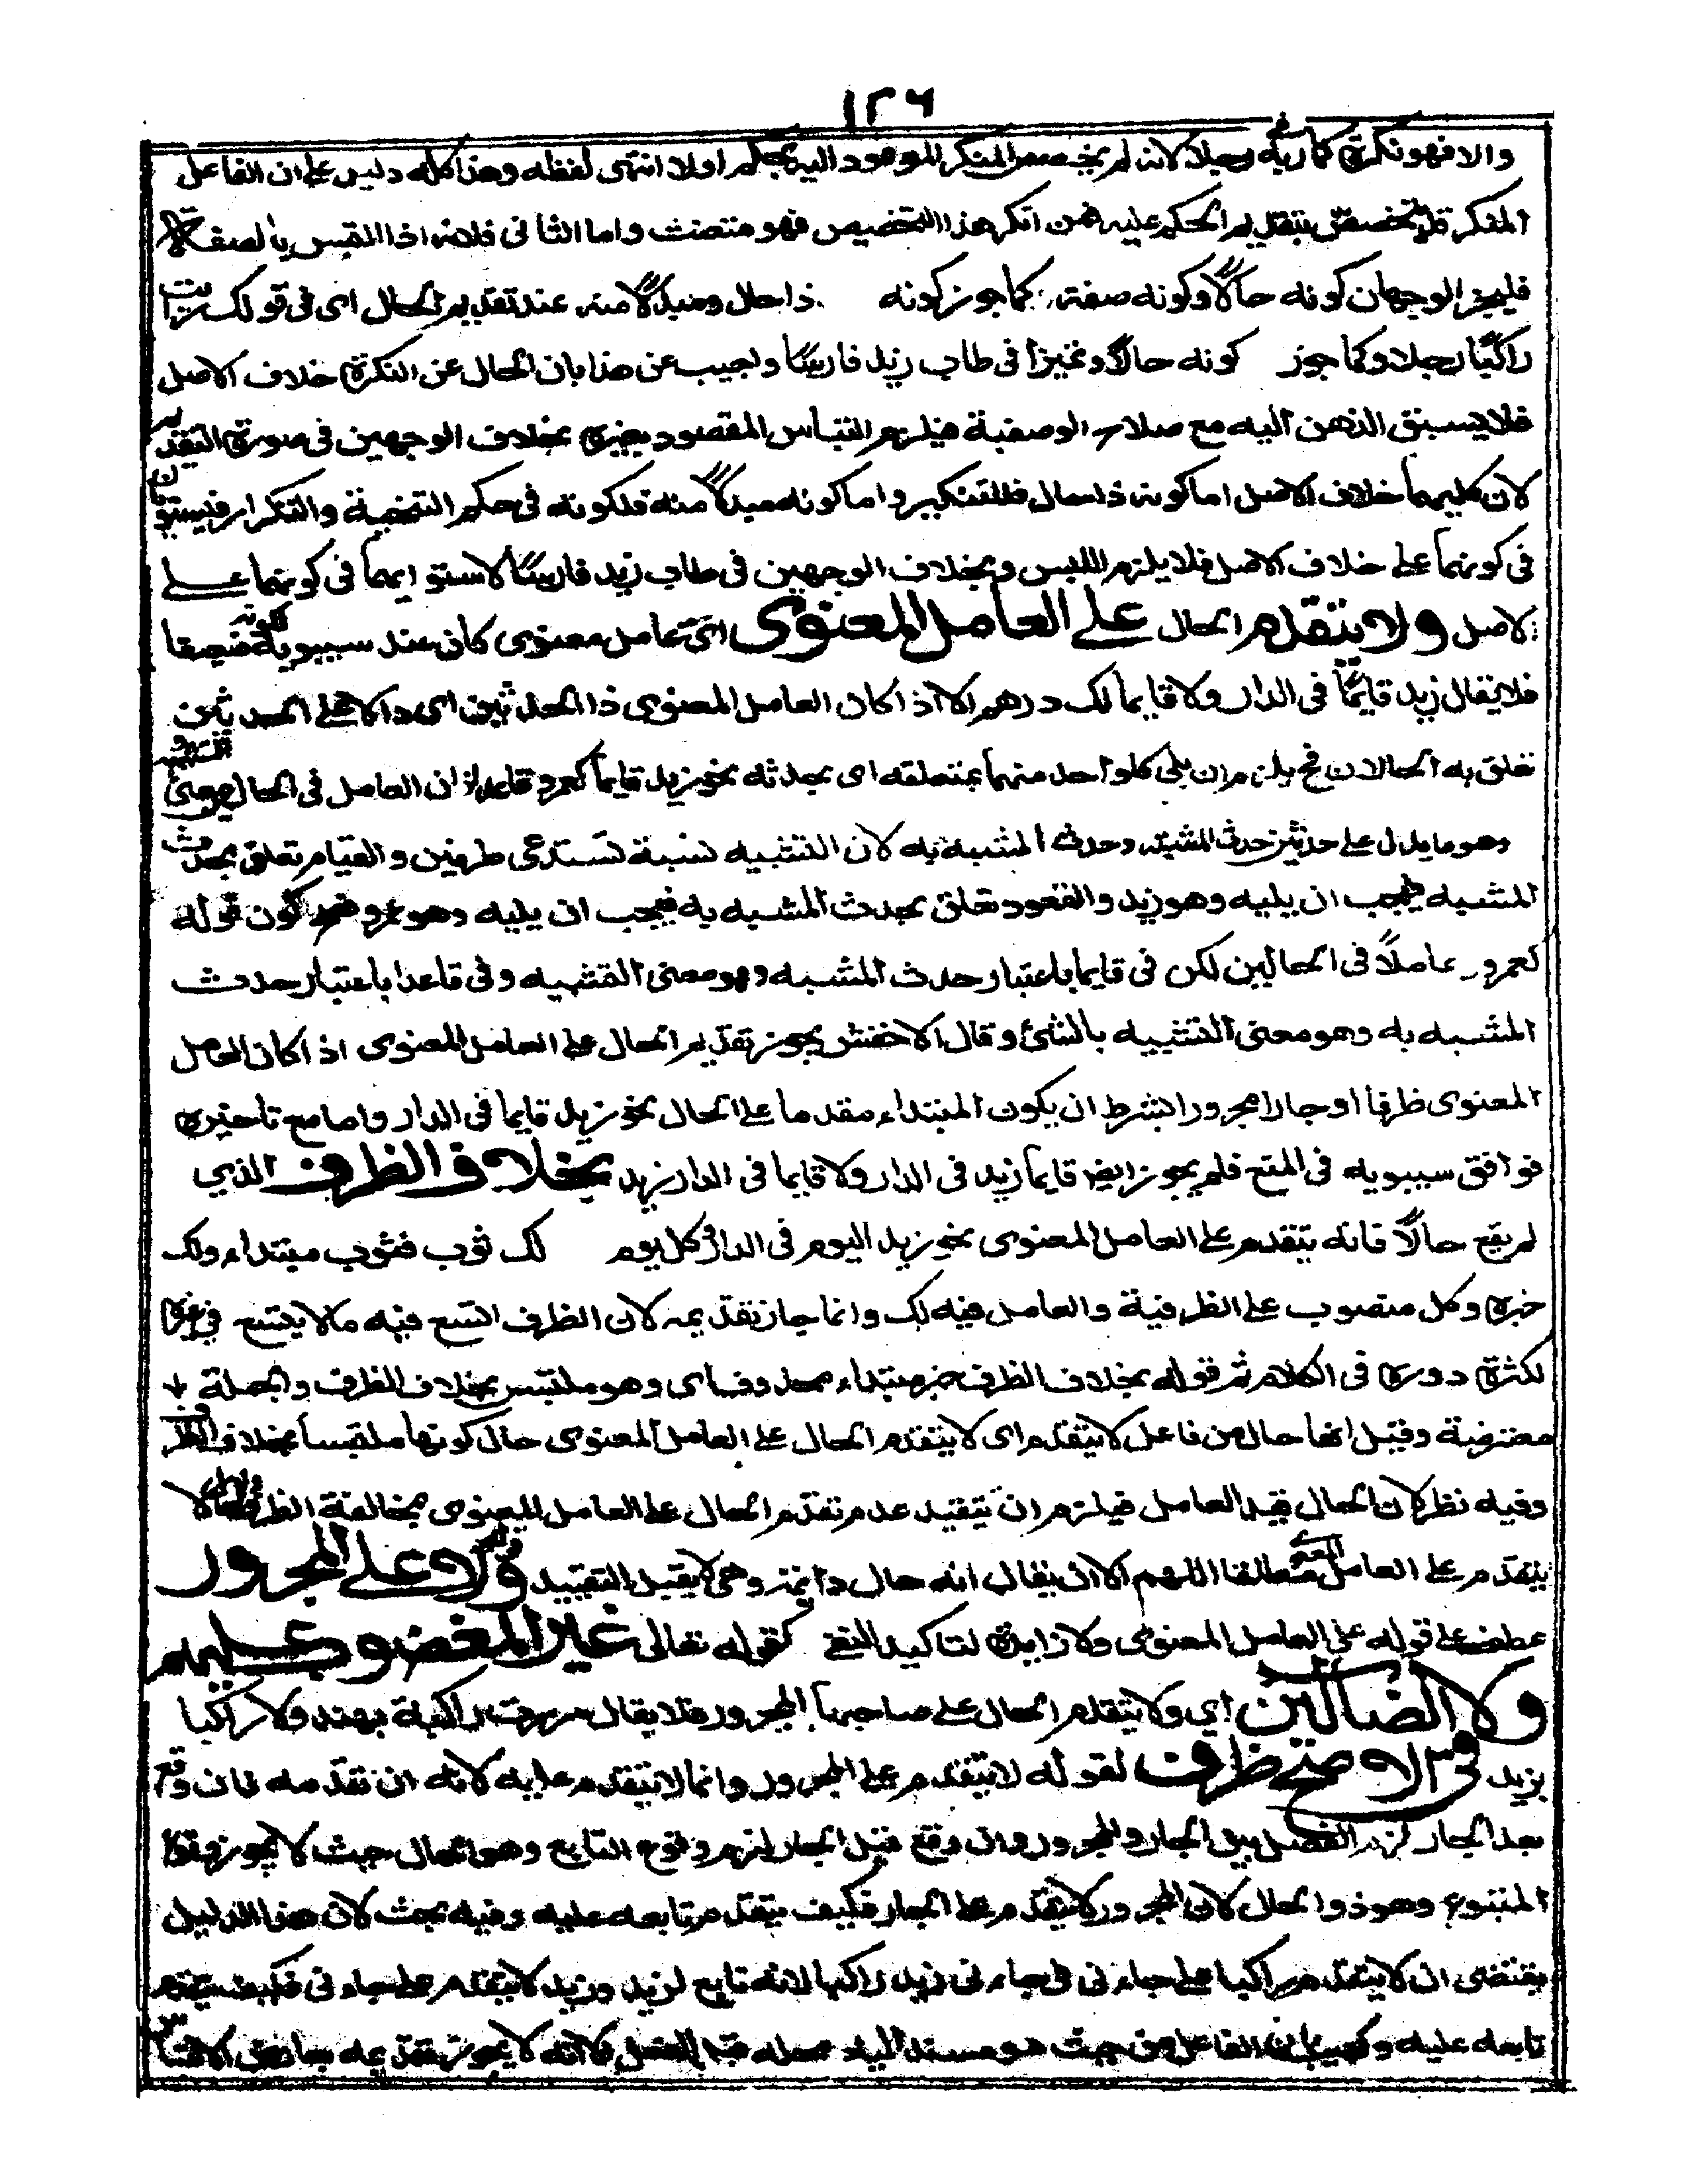 ١٢٦
والا فهو نكرة كما ربه رجلا لانه لم يخصص المنكر اولا انتهى لفظه وهذا كله دليل على ان الفاعل
المنكر قد تخصص بتقديم الحكم عليه فمن انكر هذا التخصيص فهو متعنت واما الثاني فلانه اذا التبس بالصفة
فليجز الوجهان كونه حالاً وكونه صفته كما جوز كونه ذا حال ومبدلاً منه عند تقديم الحال اى في قولك
راكبًا رجلا وكما جوز كونه حالاً وتميزا في طاب زيد فارسًا واجيب عن هذا بان الحال عن النكرة خلاف الاصل
فلا يسبق الذهن اليه مع الوصفية فيلزم التباس المقصود بغيره بخلاف الوجهين في صورة التقديم
لان كليهما خلاف الاصل اما كونه ذا حال فللتنكير واما كونه مبدلاً منه فلكونه في حكم التنحية والتكرار فيستويان
في كونهما على خلاف الاصل فلا يلزم اللبس وبخلاف الوجهين في طاب زيد فارسًا لاستوايهما في كونهما على
الاصل ولا يتقدم الحال على العامل المعنوى اىّ عامل معنوى كان عند سيبويه لكونه ضعيفا
فلا يقال زيد قايمًا في الدار ولا قايما لك درهم الا اذا كان العامل المعنوى ذا الحدثين اى دالا على الحدثين
تعلق به الحالان فح يلزم ان يلى كل واحد منهما بمتعلقه اى بحدثه نحو زيد قايما كعمرو قاعدا فان العامل في الحال معنى التشبيه
وهو ما يدل على حدثين حدث المشبه وحدث المشبه به لان التشبيه نسبة تستدعى طرفين والقيام تعلق بحدث
المشبه فيجب ان يليه وهو زيد والقعود تعلق بحدث المشبه به فيجب ان يليه وهو عمرو كون قوله
كعمرو عاملاً في الحالين لكن في قايما باعتبار حدث المشبه وهو معنى التشبيه وفي قاعدا باعتبار حدث
المشبه به وهو معنى التشبيه بالشئ وقال الاخفش يجوز تقديم الحال على العامل المعنوى اذا كان العامل
المعنوى ظرفا او جارا مجرورا بشرط ان يكون المبتداء مقدما على الحال نحو زيد قايما في الدار واما مع تاخيره
فوافق سيبويه في المنع فلم يجوز ايضا قايما زيد في الدار ولا قايما في الدار زيد بخلاف الظرف الذي
لم يقع حالاً فانه يتقدم على العامل المعنوى نحو زيد اليوم في الدار وكل يوم لك ثوب فثوب مبتداء ولك
خبره وكل منصوب على الظرفية والعامل فيه لك وانما جاز تقديمه لان الظرف اتسع فيه ما لا يتسع في غيره
لكثرة دوره في الكلام ثم قوله بخلاف الظرف خبر مبتداء محذوف اى وهو ملتبس بخلاف الظرف والجملة
معترضة وقيل انها حال من فاعل لا يتقدم اى لا يتقدم الحال على العامل المعنوى حال كونها ملتبسا بخلاف الظرف
وفيه نظر لان الحال قيد العامل فيلزم ان يتقيد عدم تقدم الحال على العامل المعنوى بمخالفة الظرف
يتقدم على العامل المعنوى مطلقا اللهم الا ان يقال انه حال دايمة وهى لا يقبل التقييد ولا على المجرور
عطف على قوله على العامل المعنوى ولا زايدة لتاكيد النفى كقوله تعالى غير المغضوب عليهم
ولا الضالين اي ولا يتقدم الحال على صاحبها المجرور فلا يقال مررت راكبة بهند ولا راكبا
بزيد في الاصح ظرف لقوله لا يتقدم على المجرور وانما لا يتقدم عليه لانه ان تقدمه فان وقع
بعد الجار لزم الفصل بين الجار والمجرور وان وقع قبل الجار لزم وقوع التابع وهو الحال حيث لا يجوز وقوع
المتبوع وهو ذو الحال لان المجرور لا يتقدم على الجار فكيف يتقدم تابعه عليه وفيه بحث لان هذا الدليل
يقتضى ان لا يتقدم راكبا على جاءنى في جاءنى زيد راكبا لانه تابع لزيد وزيد لا يتقدم على جاءنى فكيف يتقدم
تابعه عليه الفاعل من حيث هو مسند اليه محله قبل الفعل لانه لا يجوز تقديمه